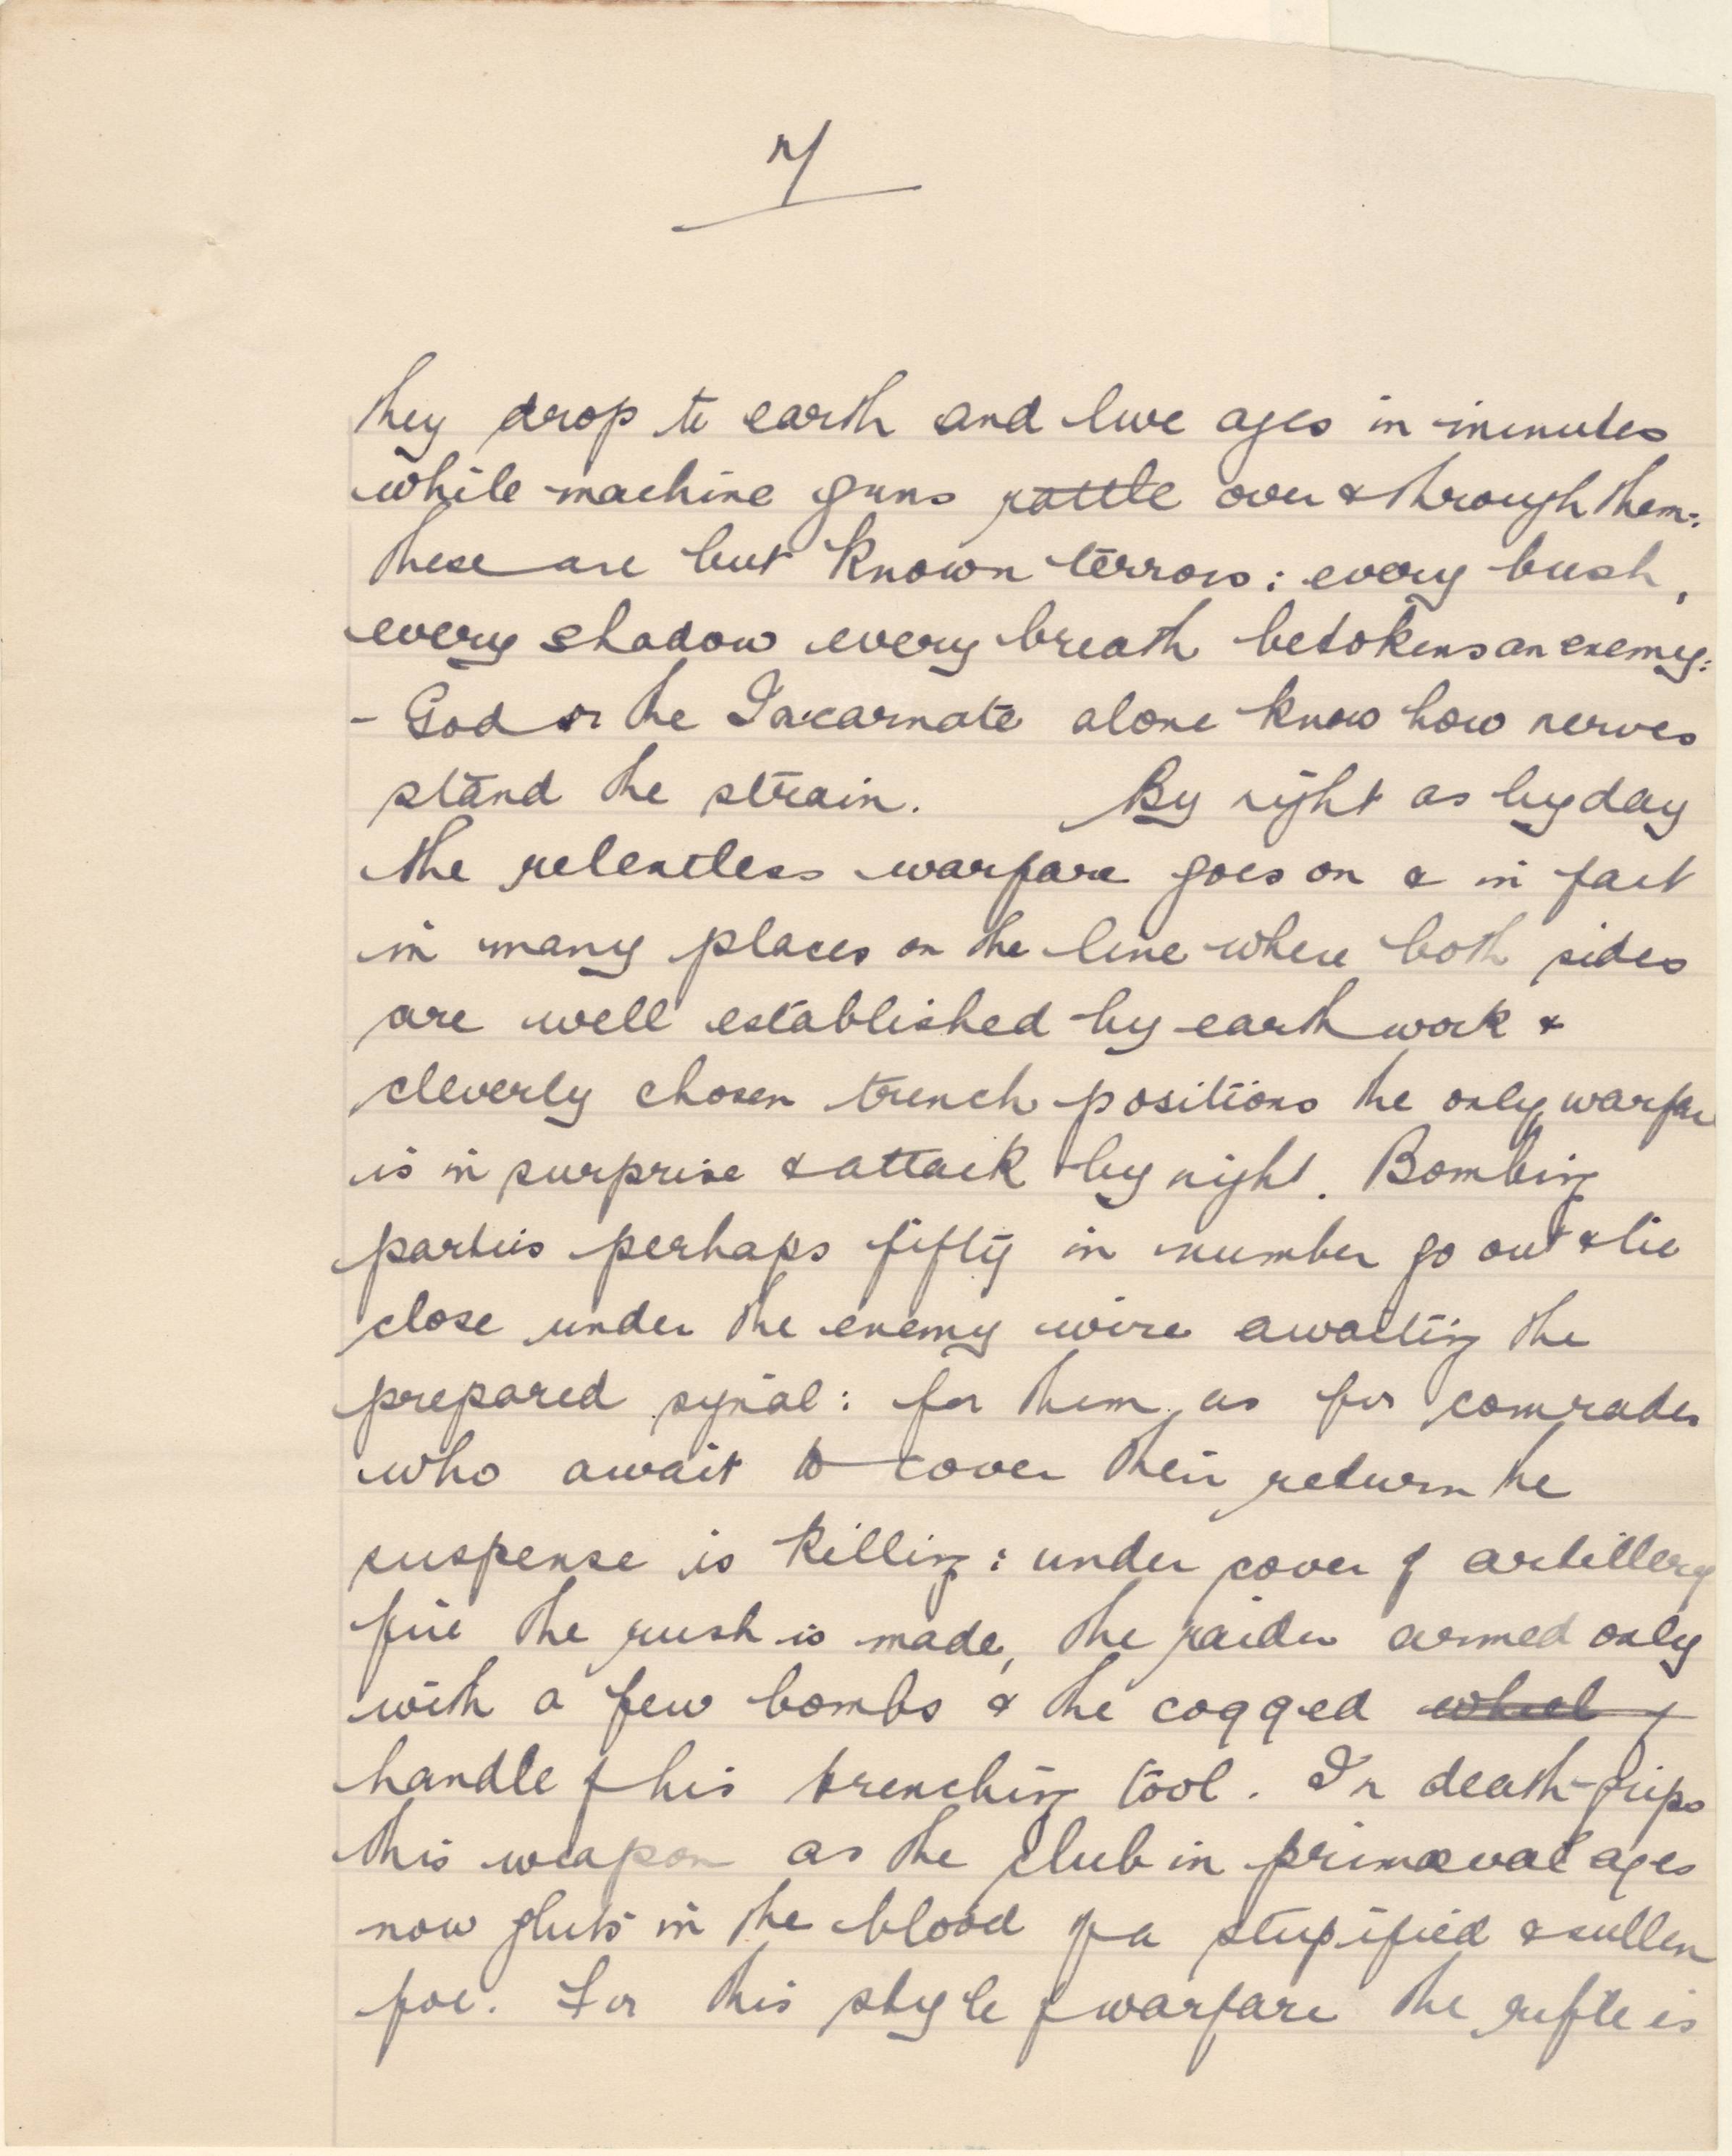 7/
they drop to earth and live ages in minutes
while machine guns rattle over & through them:
these are but known terrors: every bush,
every shadow every breath betokens an enemy:
- God or the Incarnate alone know how nerves
stand the strain. By night as by day
the relentless warfare goes on & in fact
in many places on the line where both sides
are well established by earth work &
cleverly chosen trench positions the only warfare
is in surprise & attack by night. Bombing
parties perhaps fifty in number go out & lie
close under the enemy wire awaiting the
prepared signal: for them, as for comrades
who await to cover their return the
suspense is killing: under cover of artillery
fire the rush is made, the raider armed only
with a few bombs & the cogged wheel of
handle of his trenching tool. In death-grips
this weapon as the club in primaeval ages
now gluts in the blood of a stupified & sullen
foe. For this style of warfare the rifle is